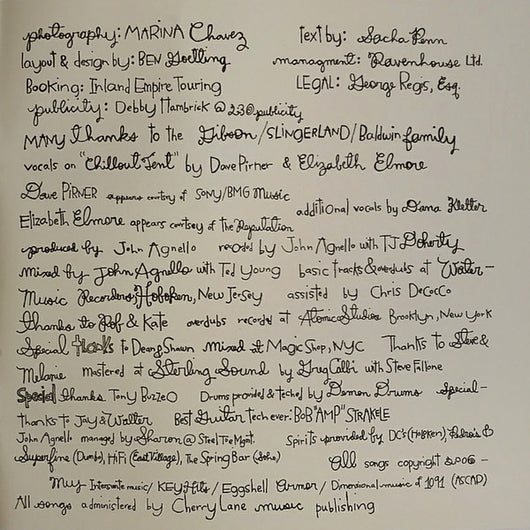 photography: MARINA Chavez text by: Sacha Penn
layout & design by: BEN Goetting managment: Ravenhouse Ltd.
Booking: Inland Empire Touring LEGAL: George Regis, Esq.
publicity: Debby Hambrick @ 230publicity
MANY thanks to the Gibson/SLINGERLAND/Baldwin family
vocals on "Chillout Tent" by Dave Pirner & Elizabeth Elmore
Dave PIRNER appears courtesy of SONY/BMG MUSIC
additiOnal vocals by Dana Kletter
Elizabeth Elmore appears courtesy of the Reputation
produced by John Agnello recorded by John Agnello with TJ Doherty
mixed by John Agnello with Ted Young basic tracks & overdubs at Water-
Music Recorders, Hoboken, New Jersey assisted by Chris DeCocco
thanks to Rob & Kate overdubs recorded at Atomic Studios Brooklyn, New York
Special thanks to Dean & Shawn mixed at Magic Shop, NYC Thanks to Steve &
Melanie mastered at Sterling Sound by Greg Calbi with Steve Fallone
Special thanks Tony BuzzeO Drums provided & teched by Demon Drums Special-
thanks to Jay & Walter Best Guitar tech ever: BoB "AMP" STRAKELE
John Agnello managed by Sharon @ Steel Toe Mgmt. Spirits provided by DC's (HoBKEN),
Superfine (Dumbo), HiFi (East Village), The Spring Bar (Soho)
All songs copyright 2006 -
Muy Interesante music/ KEY Hits/ Eggshell Armor/ Dimensional music of 1091 (ASCAP)
All songs administered by Cherry Lane music publishing